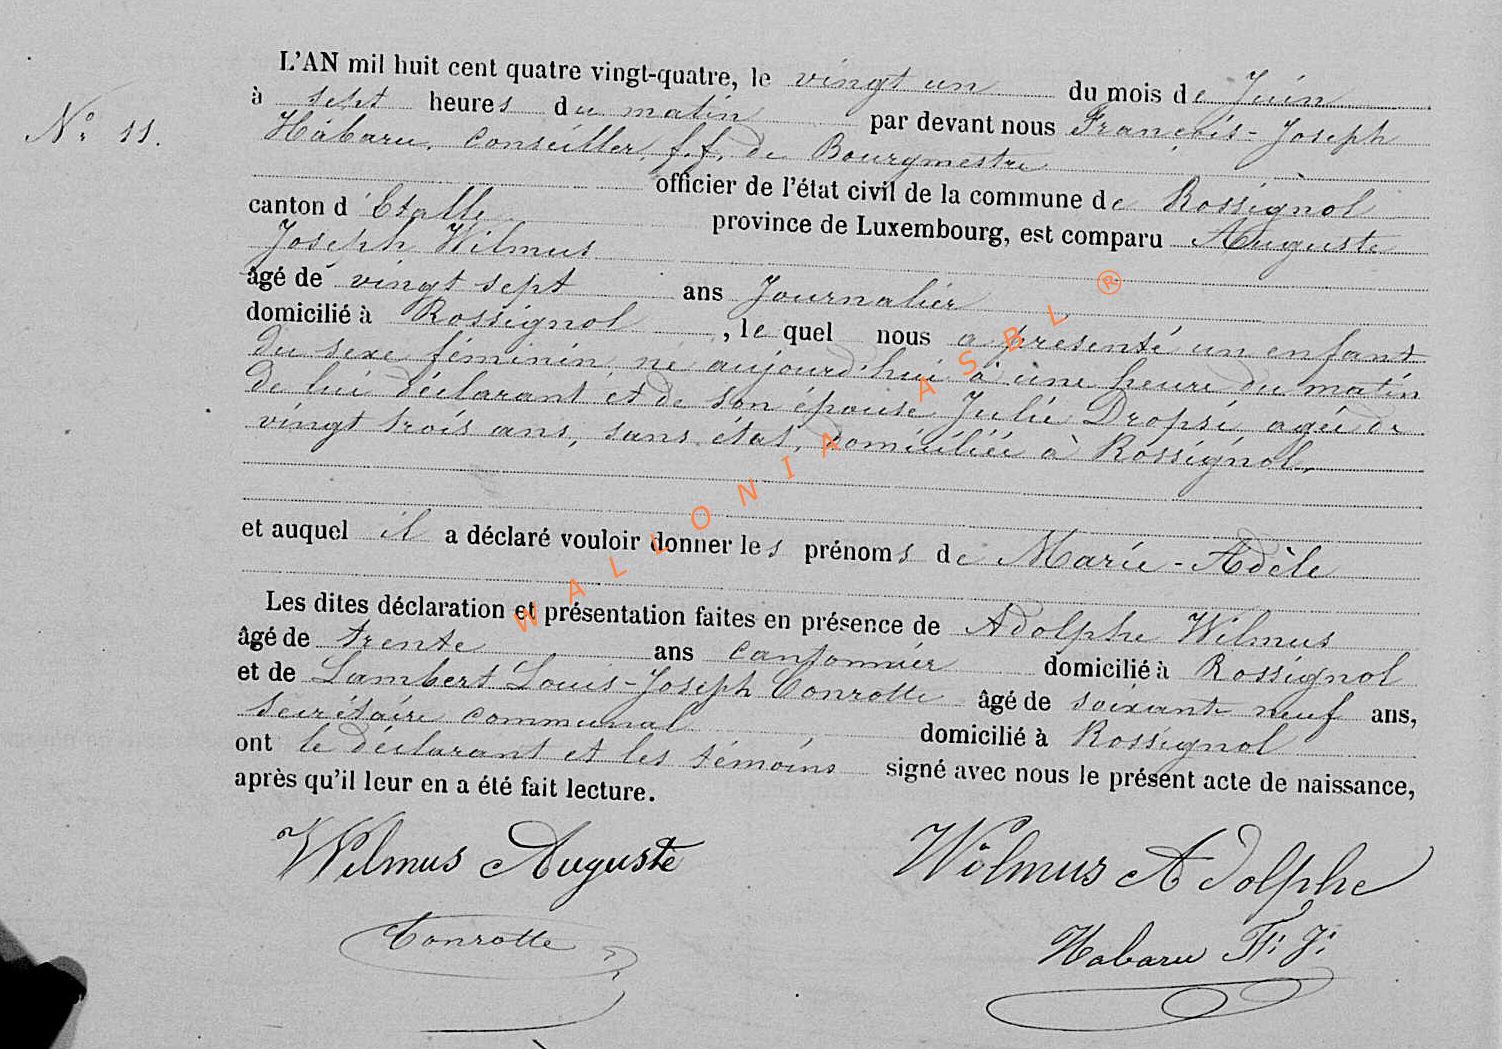 L'AN mil huit cent quatre vingt-quatre, le vingt un du mois de Juin
à sept heures du matin par devant nous François-Joseph
Nº 11.
Habaru, Conseiller, f.f. de Bourgmestre
officier de l'état civil de la commune de Rossignol
canton d'Etalle province de Luxembourg, est comparu Auguste
Joseph Wilmus
âgé de vingt sept ans Journalier
domicilié à Rossignol, lequel nous a présenté un enfant
du sexe féminin, né aujourd'hui à une heure du matin
de lui déclarant et de son épouse Julie Dropsi agée de
vingt trois ans, sans état, domiciliée à Rossignol.
et auquel il a déclaré vouloir donner les prénoms de Marie-Adèle
Les dites déclaration et présentation faites en présence de Adolphe Wilmus
âgé de trente ans cantonnier domicilié à Rossignol
et de Lambert Louis-Joseph Conrotte âgé de soixante neuf ans,
secrétaire communal domicilié à Rossignol
ont le déclarant et les témoins signé avec nous le présent acte de naissance,
après qu'il leur en a été fait lecture.
Wilmus Auguste Wilmus Adolphe
Conrotte Habaru F. J.
WALLONIA ASBL ®